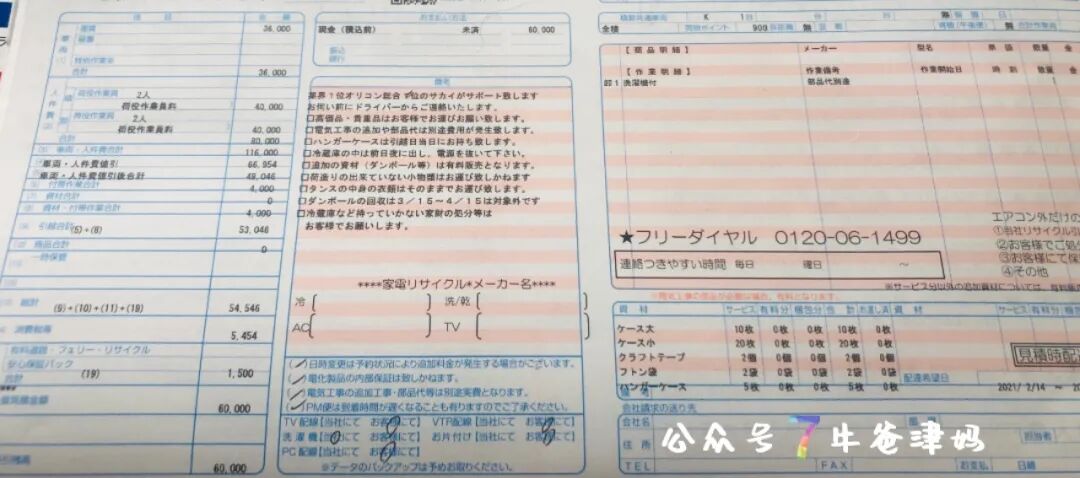 項目 金額
運賃 36,000
合計 36,000
荷役作業員 2人
荷役作業員料 40,000
荷役作業員 2人
荷役作業員料 40,000
合計 80,000
車両・人件費合計 116,000
車両・人件費値引 66,954
車両・人件費値引後合計 49,046
付帯作業合計 4,000
資材合計 0
資材・付帯作業合計 4,000
引越合計(5)+(8) 53,046
商品合計 0
一時保管
総計 (9)+(10)+(11)+(19) 54,546
消費税等 5,454
有料道路・フェリー・リサイクル
安心保証パック
合計 (19) 1,500
60,000
60,000
お支払い方法
現金(積込前) 未済 60,000
振込
銀行
備考
業界1位オリコン総合1位のサカイがサポート致します
お伺い前にドライバーからご連絡いたします。
□高価品・貴重品はお客様でお運びお願い致します。
□電気工事の追加や部品代は別途費用が発生致します。
□ハンガーケースは引越日当日にお持ち致します。
□冷蔵庫の中は前日夜に出し、電源を抜いて下さい。
□追加の資材(ダンボール等)は有料販売となります。
□荷造りの出来ていない小物類はお運び致しかねます
□タンスの中身の衣類はそのままでお運び致します。
□ダンボールの回収は3/15~4/15は対象外です
□冷蔵庫など持っていかない家財の処分等は
お客様でお願いします。
****家電リサイクル*メーカー名****
冷[ ] 洗/乾[ ]
AC[ ] TV[ ]
(✓)日時変更は予約状況により追加料金が発生する場合がございます。
(✓)電化製品の内部保証は致しかねます。
(✓)電気工事の追加工事・部品代等は別途実費となります。
(✓)PM便は到着時間が遅くなることも有りますのでご了承ください。
TV配線[当社にて お客様にて] VTR配線[当社にて お客様にて]
洗濯機[当社にて お客様にて] お片付け[当社にて お客様にて]
PC配線[当社にて お客様にて]
※データのバックアップは予めお取りください。
K 1台
金積 900
【商品明細】 メーカー 型名 単価 数量 金
【作業明細】 作業備考 作業開始日 時刻 数量 金
卸1 洗濯機付 部品代別途 1
★フリーダイヤル 0120-06-1499
連絡つきやすい時間 毎日 曜日 ~
エアコン外だけの
①当社リサイクル引
②お客様でご処
③お客様にて保
④その他
※電気工事の部品が必要な場合、有料となります。
※サービス分以外の追加資材については、有料
資材 サービス 有料分 梱包分 合計 お渡し済 資材 サービス 有料分 梱包
ケース大 10枚 0枚 0枚 10枚 0枚
ケース小 20枚 0枚 0枚 20枚 0枚
クラフトテープ 2個 0個 0個 2個 0個
フトン袋 2袋 0袋 0袋 2袋 0袋
ハンガーケース 5枚 0枚 0枚 5枚 0枚
見積時配
配達希望日 2021/ 2/14 ~ 20
備考
会社請求の送り先
会社名
住所 担当者
TEL FAX お支払 日締
公众号 7牛爸津妈